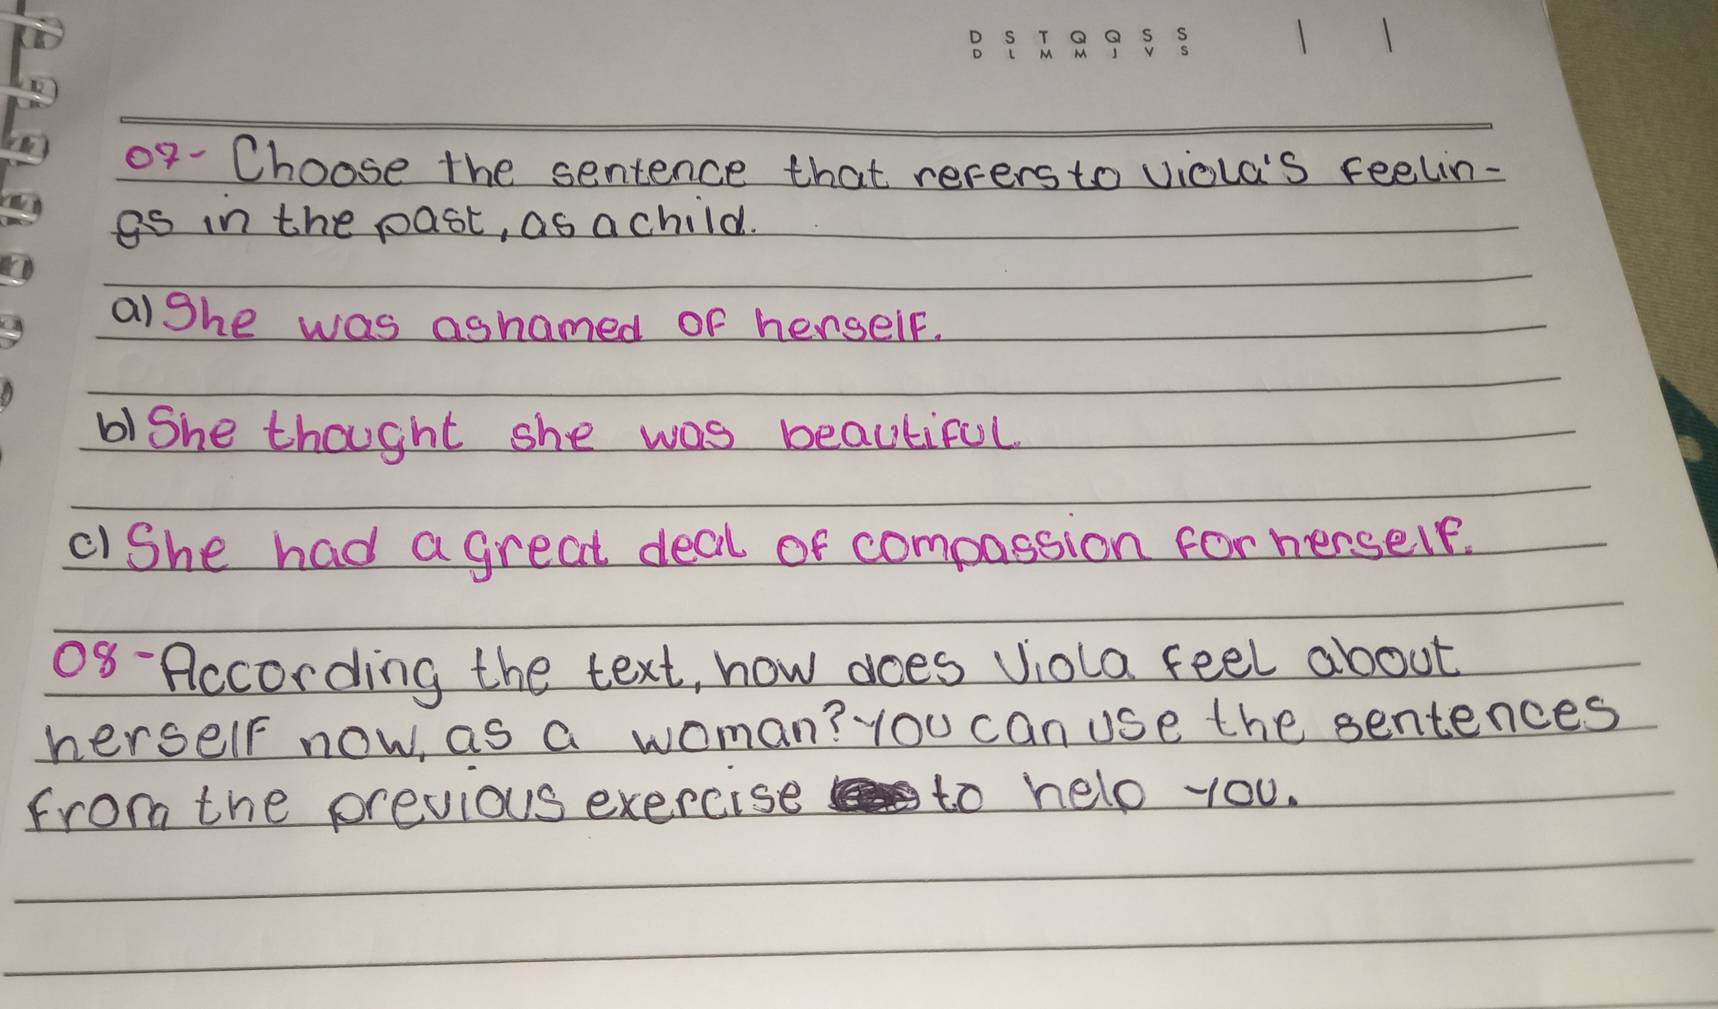 D S T Q Q S S
D L M M J V S
07- Choose the sentence that refers to Viola's feelin-
gs in the past, as a child.
a) She was ashamed of herself.
b) She thought she was beautiful.
c) She had a great deal of compassion for herself.
08- According the text, how does Viola feel about
herself now, as a woman? You can use the sentences
from the previous exercise to help you.